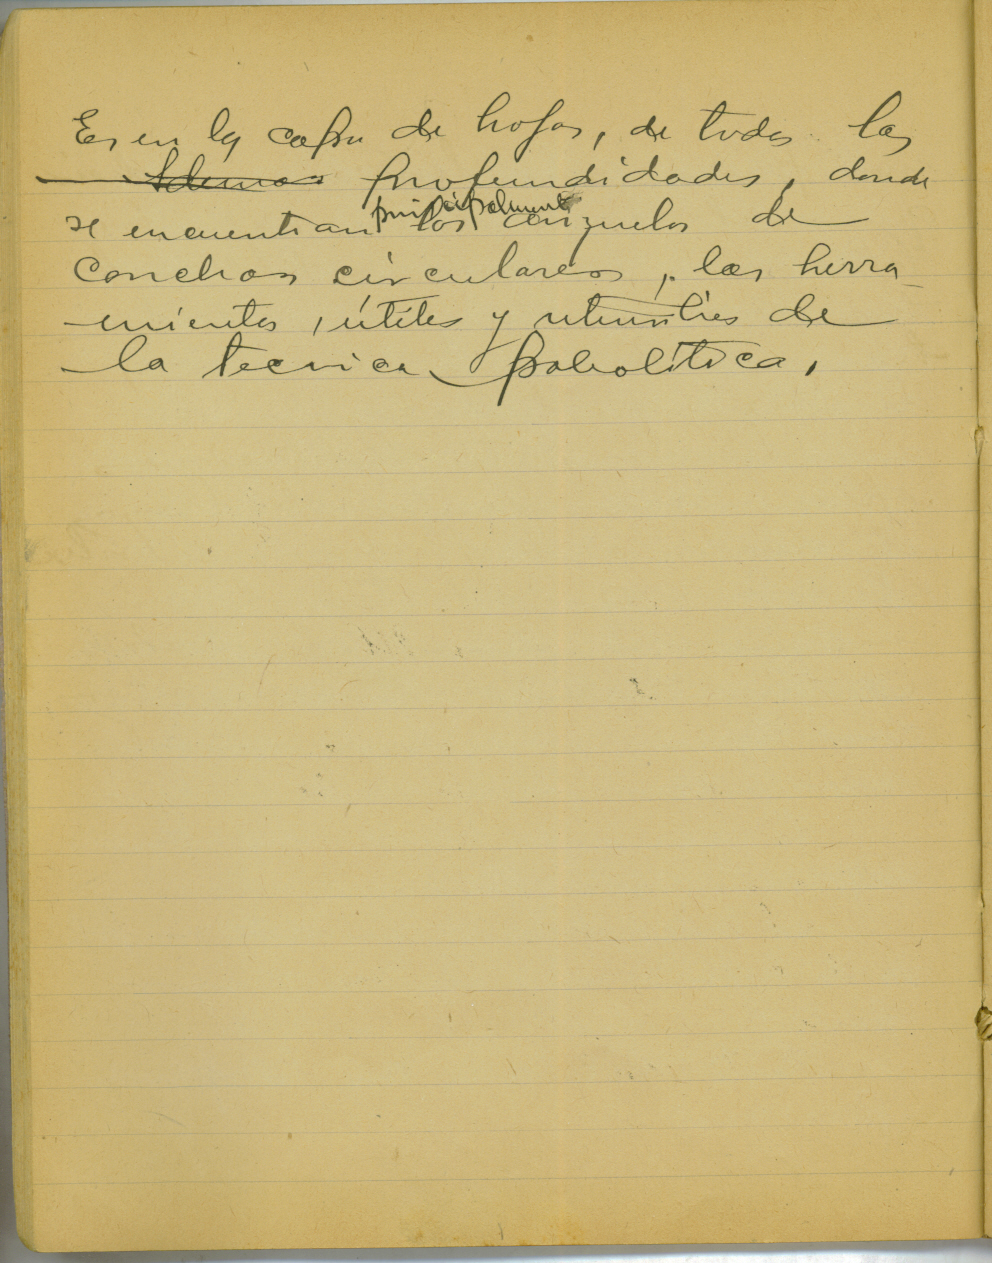 Es en la capa de hojas, de todas las
Ademas profundidades, donde
principalmente
se encuentran los anzuelos de
conchas circulares, las herra-
mientas, útiles y utensilios de
la tecnica paleolítica,